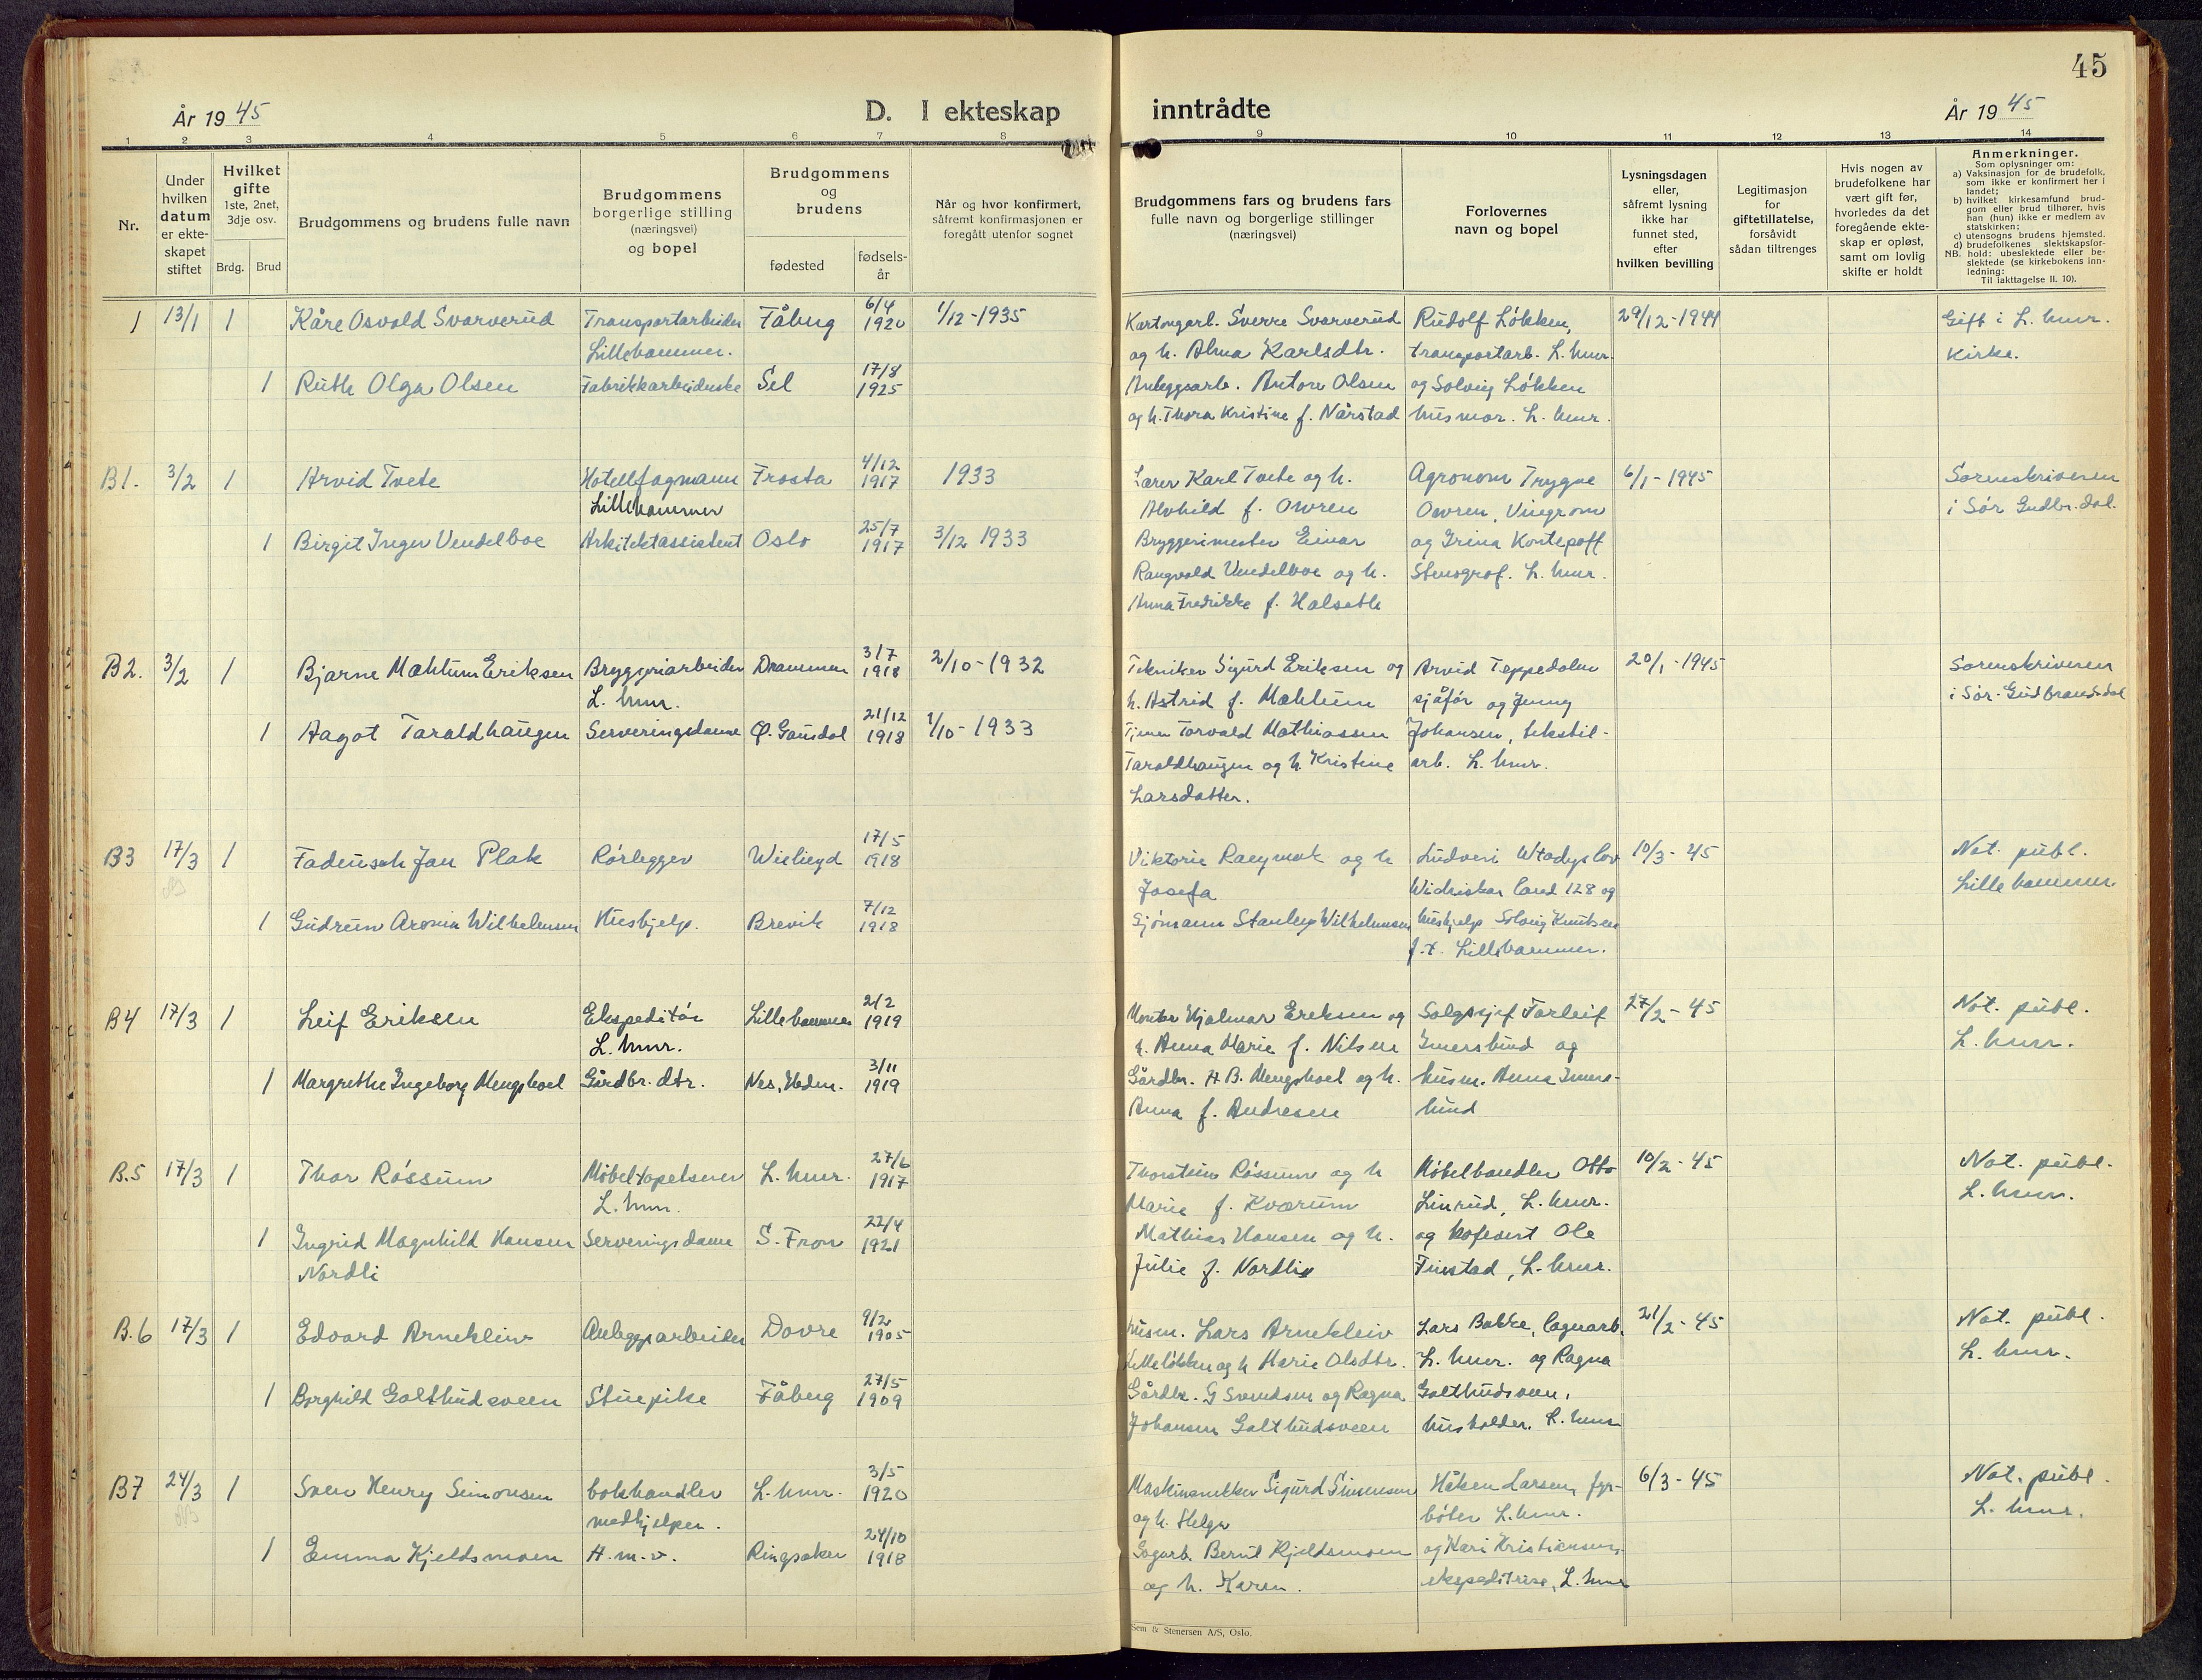 45
År 19 45
D. I ekteskap inntrådte
År 19 45
1 2 3 4 5 6 7 8 9 10 11 12 13 14
Nr.
Under hvilken datum er ekte-skapet stiftet
Hvilket gifte 1ste, 2net, 3dje osv.
Brdg. Brud
Brudgommens og brudens fulle navn
Brudgommens borgerlige stilling (næringsvei) og bopel
Brudgommens og brudens
fødested
fødsels-år
Når og hvor konfirmert, såfremt konfirmasjonen er foregått utenfor sognet
Brudgommens fars og brudens fars fulle navn og borgerlige stillinger (næringsvei)
Forlovernes navn og bopel
Lysningsdagen eller, såfremt lysning ikke har funnet sted, efter hvilken bevilling
Legitimasjon for giftetillatelse, forsåvidt sådan tiltrenges
Hvis nogen av brudefolkene har vært gift før, hvorledes da det foregående ekte-skap er opløst, samt om lovlig skifte er holdt
Anmerkninger.
Som oplysninger om:
a) Vaksinasjon for de brudefolk, som ikke er konfirmert her i landet;
b) hvilket kirkesamfund brud-gom eller brud tilhører, hvis han (hun) ikke er medlem av statskirken;
c) utensogns brudens hjemsted.
d) brudefolkenes slektskapsfor-hold: ubeslektede eller be-slektede (se kirkebokens inn-ledning:
NB.
Til iakttagelse II. 10).
1 13/1 1 Kåre Osvald Svarverud Transportarbeider Fåberg 6/4 1920 1/12-1935 Kartongarb. Sverre Svarverud Rudolf Løkken, 29/12-1944 Gift i L. hmr.
Lillehammer. og h. Alma Karlsdtr. transportarb. L. hmr. Kirke.
1 Ruth Olga Olsen Fabrikkarbeiderske Sel 17/8 1925 Anleggsarb. Anton Olsen og Solveig Løkken
og h. Thora Kristine f. Nårstad husmor. L. hmr.
B1. 3/2 1 Arvid Tvete Hotellfagmann Frosta 4/12 1917 1933 Lærer Karl Tvete og h. Agronom Trygve 6/1-1945 Sorenskriveren
Lillehammer Alvhild f. Owren Owren, Vingrom i Sør Gudbr.dal.
1 Birgit Inger Vendelboe Arkitektassistent Oslo 25/7 1917 3/12 1933 Bryggerimester Einar og Irina Kontepoff
Rangvald Vendelboe og h. Stenograf. L. hmr.
Anna Fredrikke f. Halseth
B2. 3/2 1 Bjarne Mæhlum Eriksen Bryggeriarbeider Drammen 3/7 1918 2/10-1932 Tekniker Sigurd Eriksen og Arvid Teppedalen 20/1-1945 Sorenskriveren
L. hmr. h. Astrid f. Mæhlum sjåfør og Jenny i Sør-Gudbrandsdal
1 Aagot Taraldhaugen Serveringsdame Ø. Gausdal 21/12 1918 1/10-1933 Torvald Mathiassen Johansen, tekstil-
Taraldhaugen og h. Kristine arb. L. hmr.
Larsdatter.
B3 17/3 1 Jan Plak Rørlegger 17/5 1918 Viktorie og h 10/3-45 Not. publ.
Josefa 128 og Lillehammer.
1 Gudrun Wilhelmsen Hushjelp. Brevik 7/12 1918 Sjømann Stanley Wilhelmsen hushjelp Solveig Knutsen
f.t. Lillehammer.
B4 17/3 1 Leif Eriksen Ekspeditør Lillehammer 2/2 1919 Montør Hjalmar Eriksen og Salgssjef Torleif 27/2-45 Not. publ.
L. hmr. h. Anna Marie f. Nilsen Imerslund og L. hmr.
1 Margrethe Ingeborg Mengshoel Gårdbr. dtr. Nes, Hedm. 3/11 1919 Gårdbr. H. B. Mengshoel og h. husm. Anna Imers-
Anna f. Andresen lund
B.5 17/3 1 Thor Røssum Møbeltapetserer L. hmr. 27/6 1917 Thorstein Røssum og h Møbelhandler Otto 10/2-45 Not. publ.
L. hmr. Marie f. Kværum Linrud, L. hmr. L. hmr.
1 Ingrid Magnhild Hansen Serveringsdame S. Fron 22/4 1921 Mathias Hansen og h. og hofvert Ole
Nordli Julie f. Nordli Finstad, L. hmr.
B.6 17/3 1 Edvard Arnekleiv Anleggsarbeider Dovre 9/2 1905 husm. Lars Arnekleiv Lars Bakke, lagerarb. 21/2-45 Not. publ.
og h Marie Olsdtr. L. hmr. og Ragna L. hmr.
1 Borghild Galthudsveen Stuepike Fåberg 27/5 1909 Gårdbr. G Svendsen og Ragna Galthudsveen,
Johansen Galthudsveen husholder. L. hmr
B7 24/3 1 Svein Henry Simonsen bokhandler L. hmr. 3/5 1920 Sigurd Simonsen Håken Larsen, fyr- 6/3-45 Not. publ.
medhjelper. og h. Helga bøter L. hmr. L. hmr.
1 Emma Kjeldsmoen H.m.v. Ringsaker 24/10 1918 Sagarb. Bernt Kjeldsmoen og Kari Kristiansen,
og h. Karen. ekspeditrise, L. hmr
Sem & Stenersen A/S, Oslo.